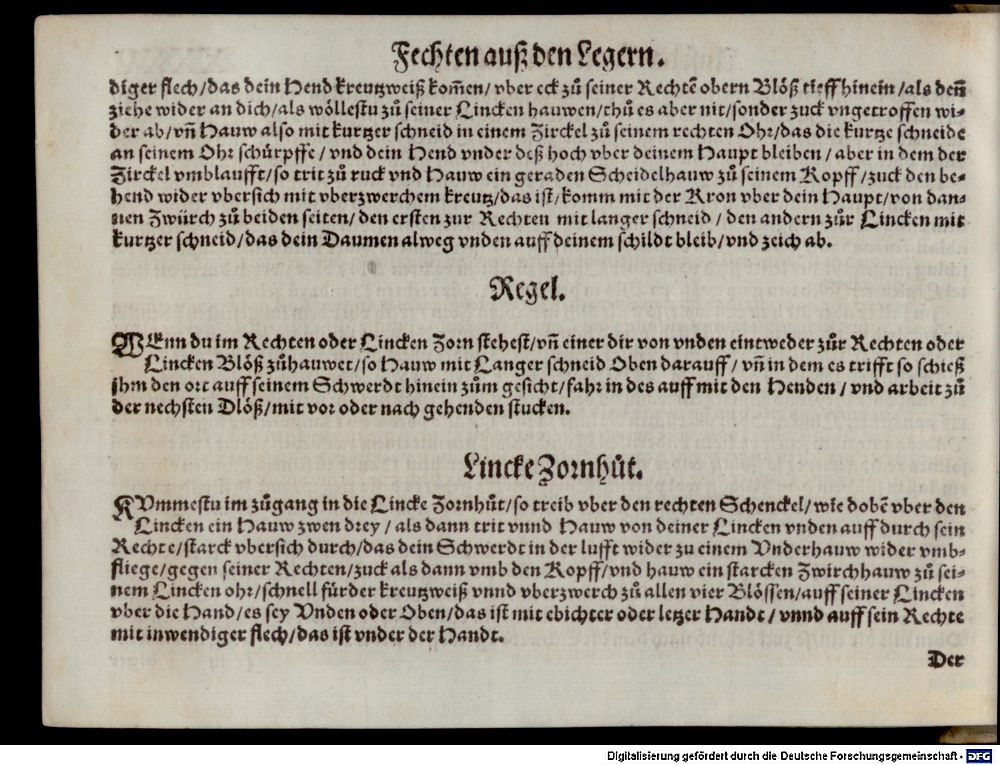 Fechten auß den Legern.
diger flech/das dein Hend kreutzweiß kom̃en/ vber eck zů seiner Rechtẽ obern Blöß tieff hinein/als deñ
ziehe wider an dich/als wöllestu zů seiner Lincken hauwen/thů es aber nit/sonder zuck vngetroffen wi-
der ab/vñ Hauw also mit kurtzer schneid in einem Zirckel zů seinem rechten Ohr/das die kurtze schneide
an seinem Ohr schürpffe/ vnd dein Hend vnder deß hoch vber deinem Haupt bleiben/ aber in dem der
Zirckel vmblaufft/so trit zů ruck vnd Hauw ein geraden Scheidelhauw zů seinem Kopff/zuck den be-
hend wider vbersich mit vberzwerchem kreutz/das ist/komm mit der Kron vber dein Haupt/von dan-
nen Zwürch zů beiden seiten/ den ersten zur Rechten mit langer schneid / den andern zůr Lincken mit
kurtzer schneid/das dein Daumen alweg vnden auff deinem schildt bleib/vnd zeich ab.
Regel.
WEnn du im Rechten oder Lincken Zorn stehest/vñ einer dir von vnden eintweder zůr Rechten oder
Lincken Blöß zůhauwet/so Hauw mit Langer schneid Oben darauff/ vñ in dem es trifft so schieß
ihm den ort auff seinem Schwerdt hinein zům gesicht/fahr in des auff mit den Henden / vnd arbeit zů
der nechsten Dlöß/mit vor oder nach gehenden stucken.
Lincke Zornhůt.
KVmmestu im zůgang in die Lincke Zornhůt/so treib vber den rechten Schenckel/wie dobẽ vber den
Lincken ein Hauw zwen drey / als dann trit vnnd Hauw von deiner Lincken vnden auff durch sein
Rechte/starck vbersich durch/das dein Schwerdt in der lufft wider zu einem Vnderhauw wider vmb-
fliege/gegen seiner Rechten/zuck als dann vmb den Kopff/vnd hauw ein starcken Zwirchhauw zů sei-
nem Lincken ohr/schnell fürder kreutzweiß vnnd vberzwerch zů allen vier Blössen/auff seiner Lincken
vber die Hand/es sey Vnden oder Oben/das ist mit ebichter oder letzer Handt / vnnd auff sein Rechte
mit inwendiger flech/das ist vnder der Handt.
Der
Digitalisierung gefördert durch die Deutsche Forschungsgemeinschaft - DFG